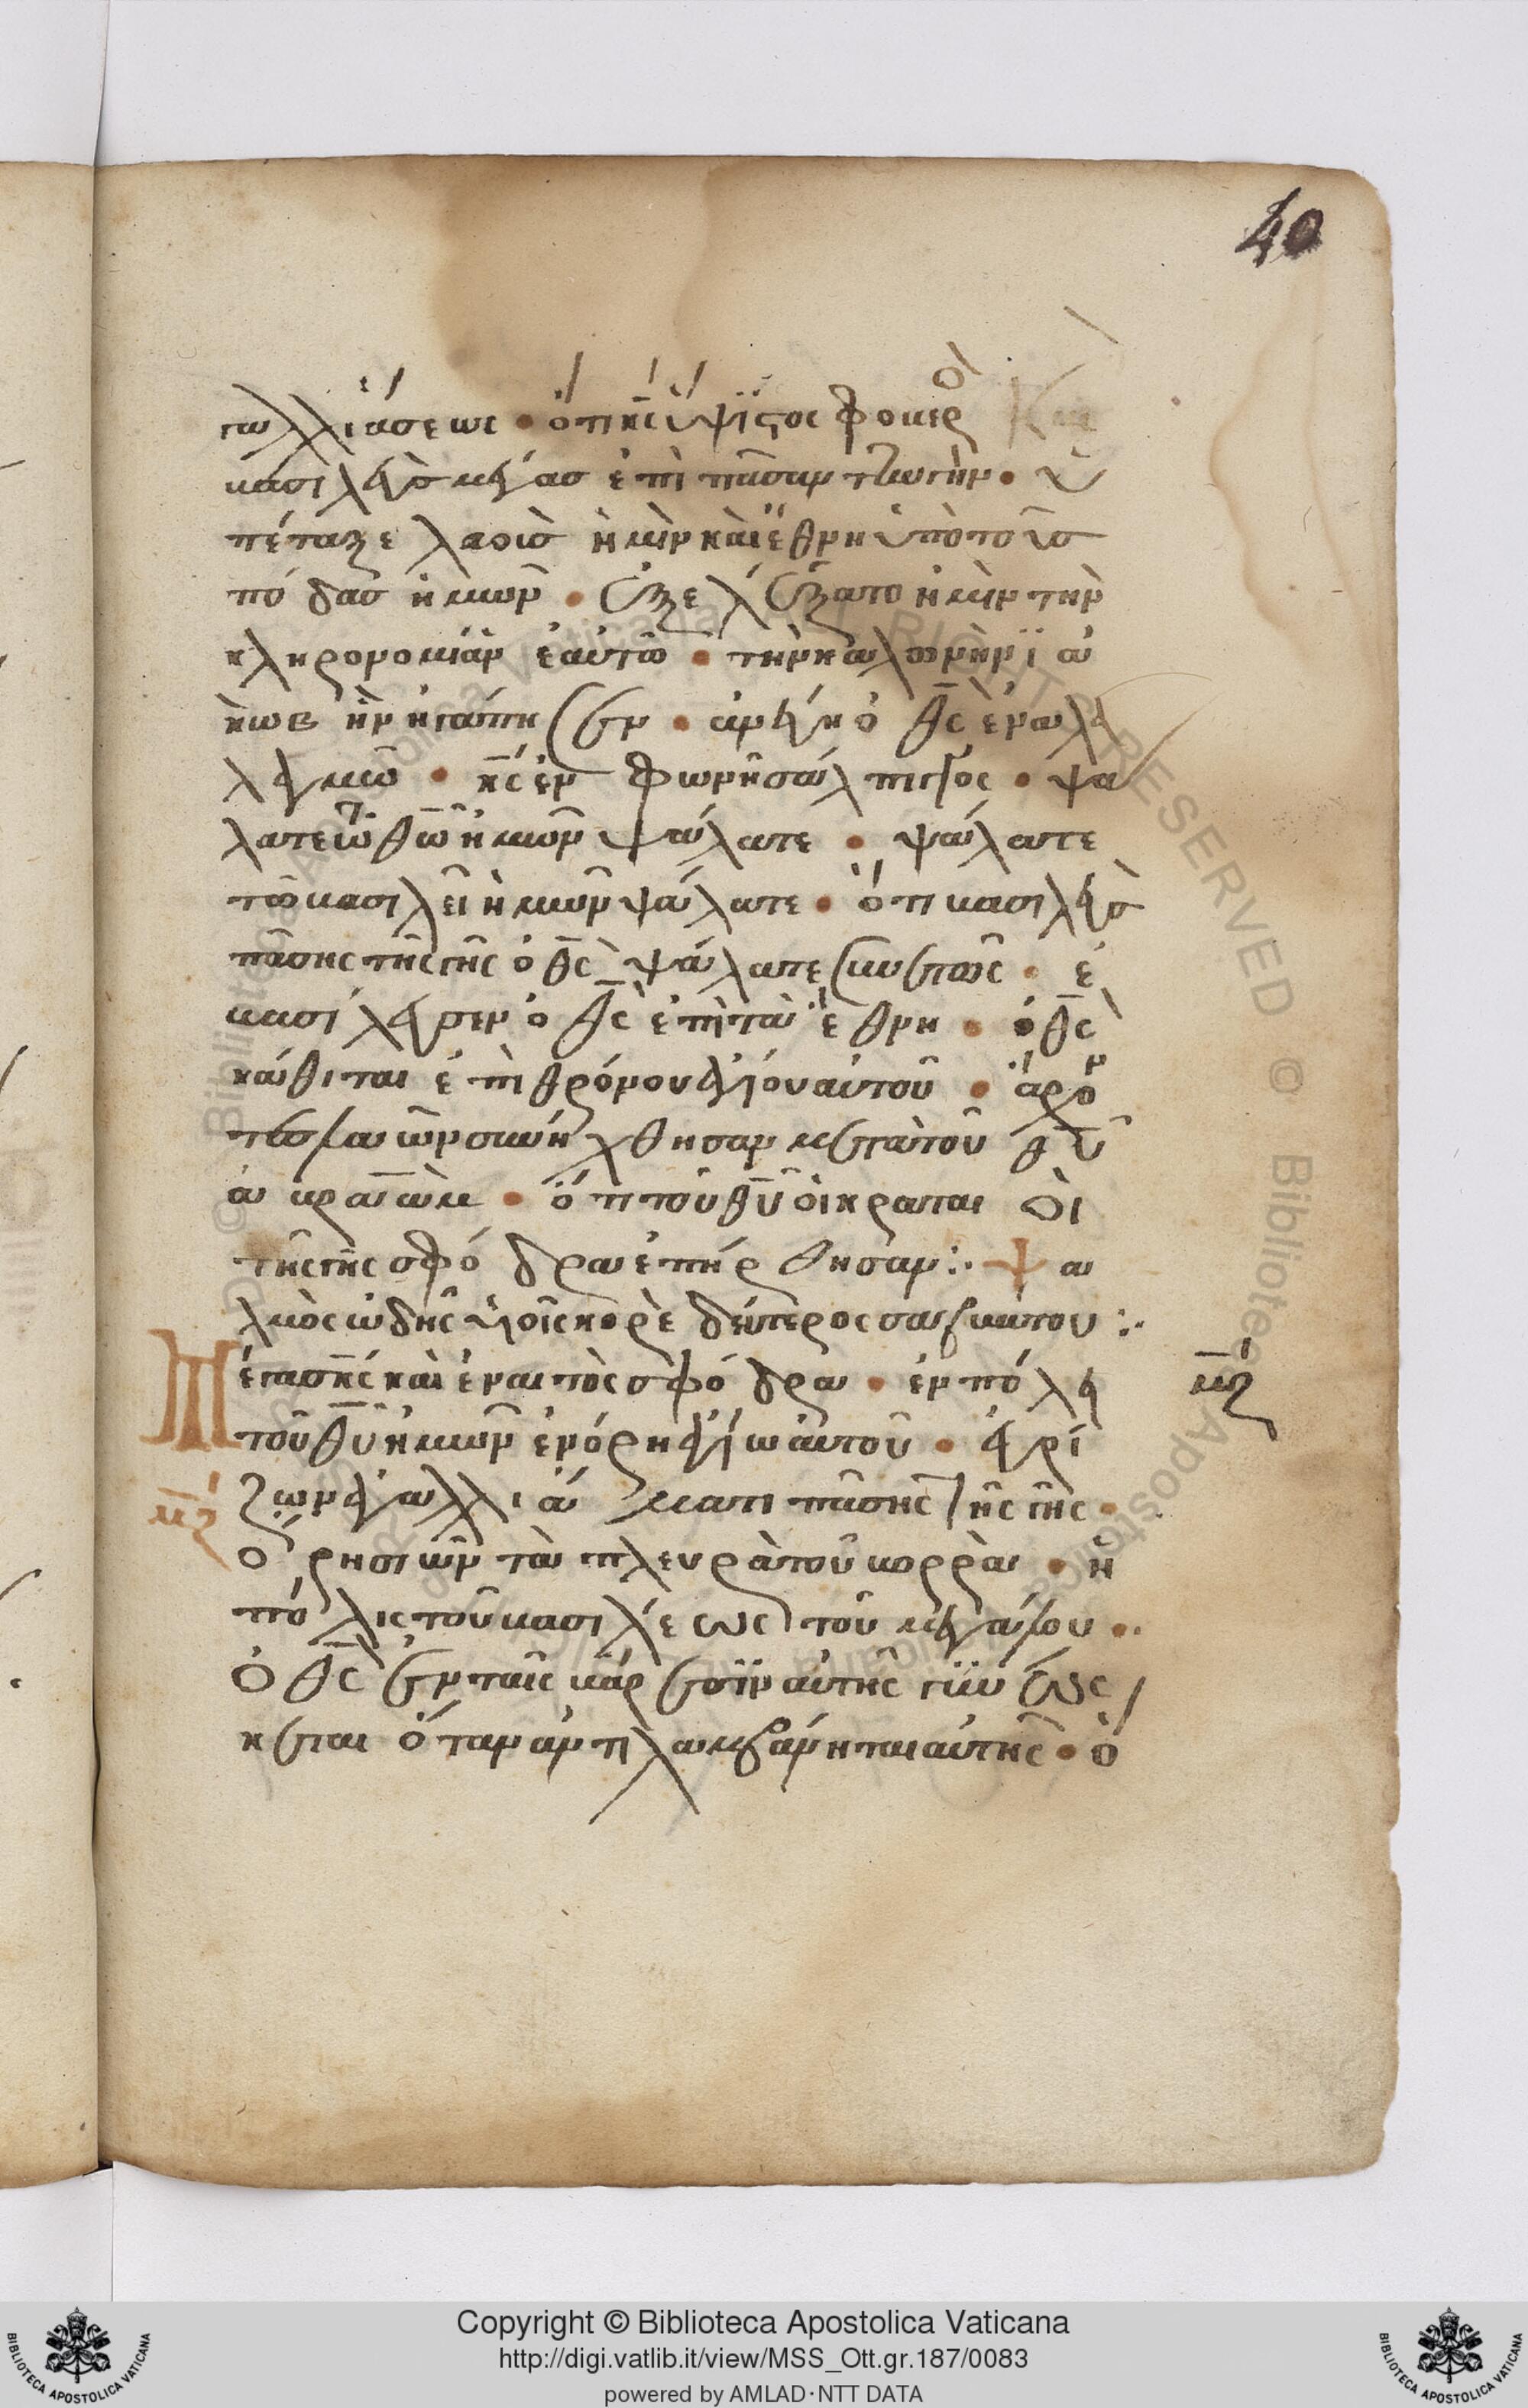 40
γαλλιάσεως · ὅτι κ̅ς ὕψιστος φοβερὸ
βασιλεὺς μέγας ἐπὶ πᾶσαν τὴν γῆν · ὑ
πέταξε λαοὺς ἡμὶν καὶ ἔθνη ὑπὸ τοὺς
πόδας ἡμῶν · ἐξελέξατο ἡμὶν τὴν
κληρονομίαν ἑαυτῶ · τὴν καλονὴν ϊα
κὼβ ἣν ἠγάπησεν · ἀνέβη ὁ θ̅ς ἐν ἀλα
λαγμῶ · κ̅ς ἐν φωνῆ σάλπιγγος · ψά
λατε τῶ θ̅ω ἡμῶν ψάλατε · ψάλατε
τῶ βασιλεῖ ἡμῶν ψάλατε · ὅτι βασιλεὺς
πάσης τῆς γῆς ὁ θ̅ς ψάλατε συνετῶς · ἐ
βασίλευσεν ὁ θ̅ς ἐπὶ τὰ ἔθνη · ὁ θ̅ς
κάθιται ἐπὶ θρόνου ἁγίου αὐτοῦ · ἄρχον
τες λαῶν συνήχθησαν μετὰ τοῦ θ̅υ
ἀβραὰμ · ὅτι τοῦ θ̅υ οἱ κραται οἱ
τῆς γῆς σφόδρα ἐπήρθησαν : · ψα
λμὸς ὠδῆς υἱοῖς κορὲ δευτέρος σαββάτου : ·
Μέγας κ̅ς καὶ ἐναιτὸς σφόδρα · ἐν πόλει
μ̅ζ
τοῦ θ̅υ ἡμῶν ἐν ὄρη ἁγίω αὐτοῦ · εὐρί
ζων ἀγαλλιάματι πάσης τῆς γῆς ·
μ̅ζ
ὄρη σιὼν τὰ πλευρὰ τοῦ βορρὰ · ἡ
πόλις τοῦ βασιλέως τοῦ μεγάλου · ·
ὁ θ̅ς ἐν ταῖς βάρεσϊν αὐτῆς γινώσ
κεται ὅταν ἀντιλαμβάνηται αὐτῆς · ὁ
Copyright © Biblioteca Apostolica Vaticana
http://digi.vatlib.it/view/MSS_Ott.gr.187/0083
powered by AMLAD·NTT DATA